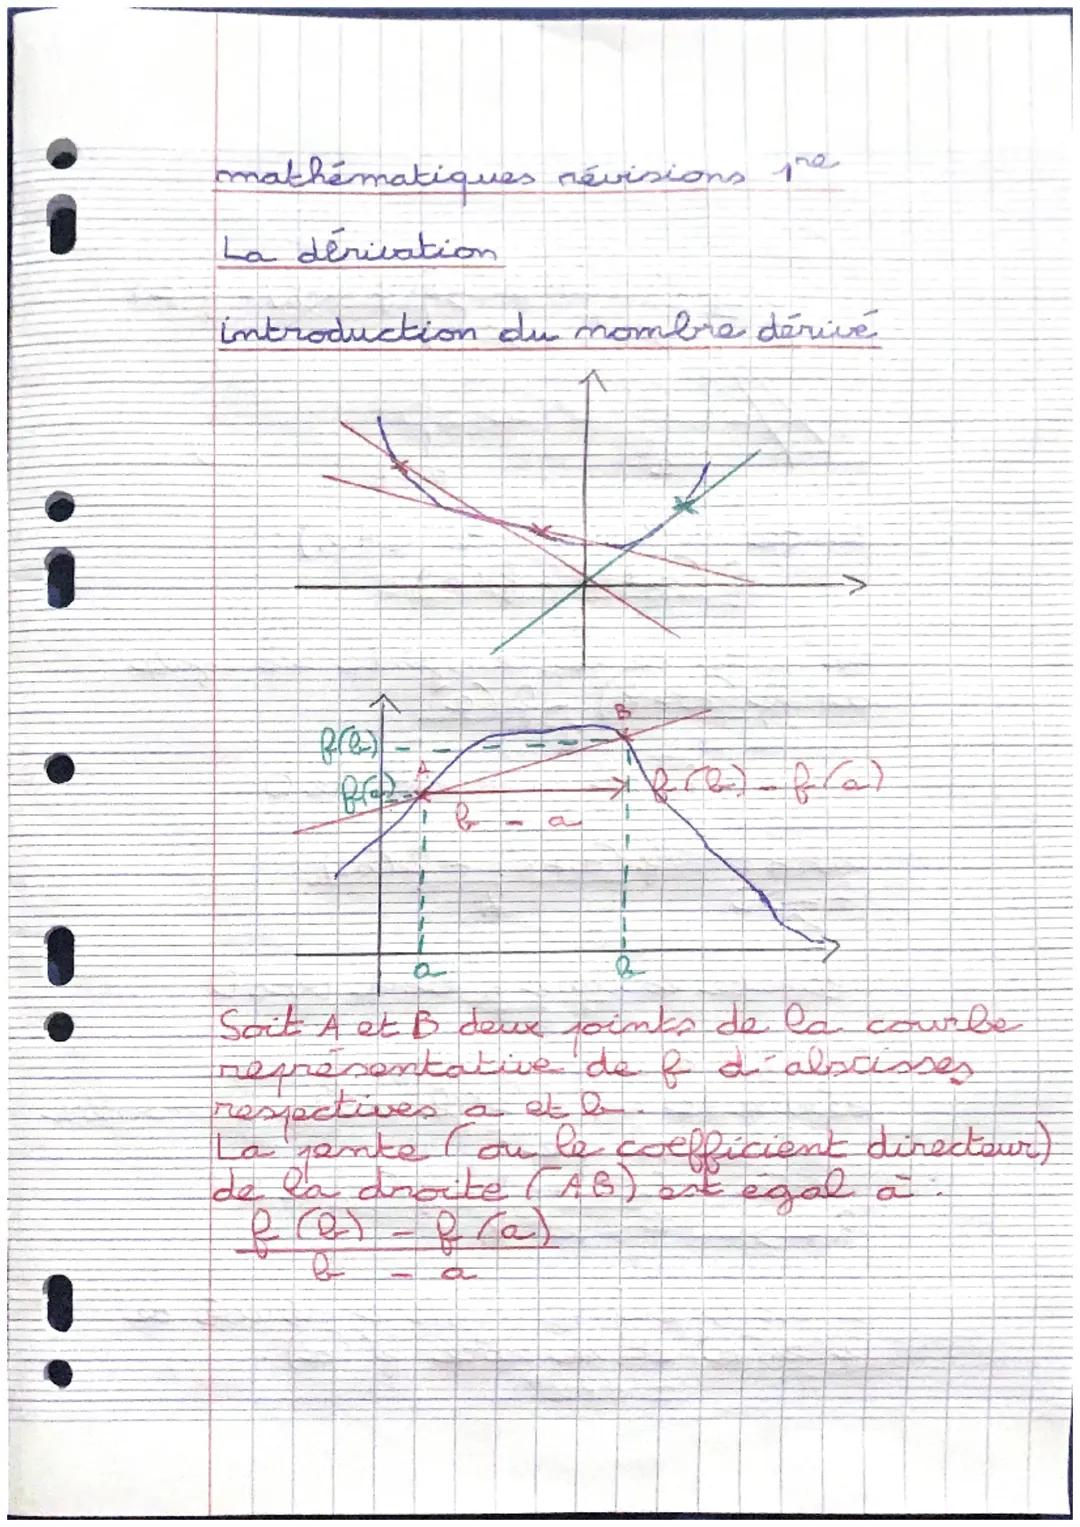 mathématiques révisions 1re
La dérivation
introduction du nombre dérivé
f(b)
B
A
f(a)
f(b) - f(a)
b - a
a
b
Soit A et B deux points de la courbe
représentative de f d'abscisses
respectives a et b.
La pente (ou le coefficient directeur)
de la droite (AB) est égal à :
f(b) - f(a)
b - a